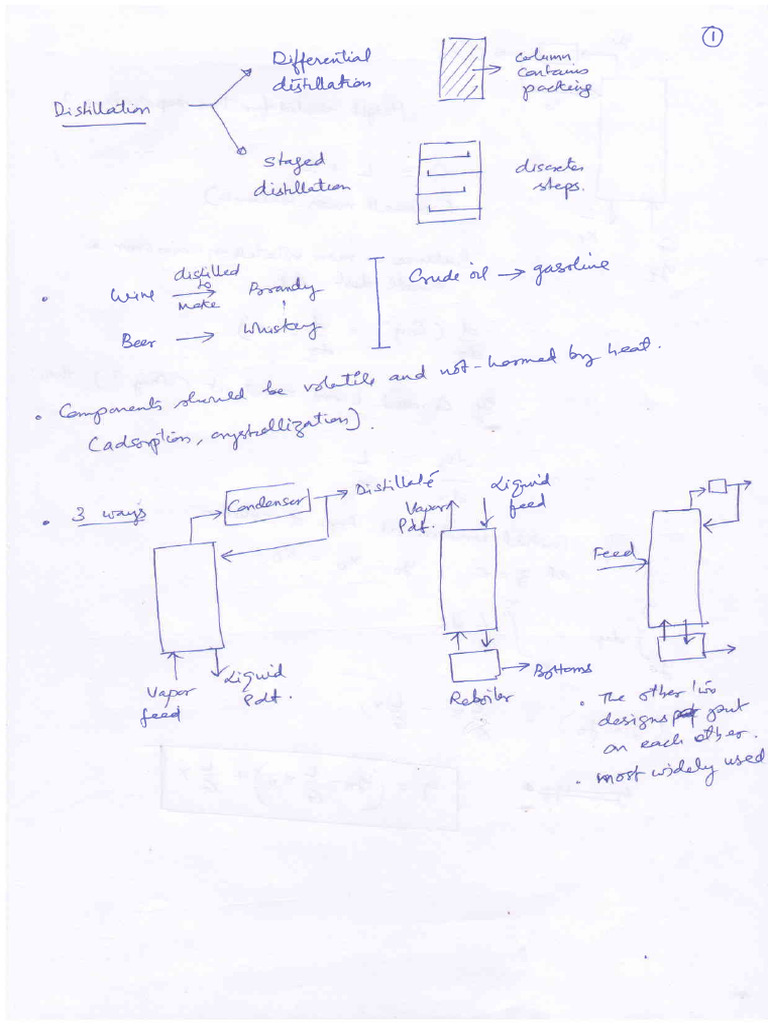 1
Differential
distillation
column
contains
packing
Distillation
Staged
distillation
discrete
steps.
• Wine distilled to make Brandy
Beer → Whiskey
Crude oil → gasoline
• Components should be volatile and not-harmed by heat.
(adsorption, crystallization).
• 3 ways
Condenser → Distillate
Vapor feed
Liquid Pdt.
Vapor Pdt.
Liquid feed
Reboiler
Bottoms
Feed
• The other two
designs put
on each other.
• most widely used